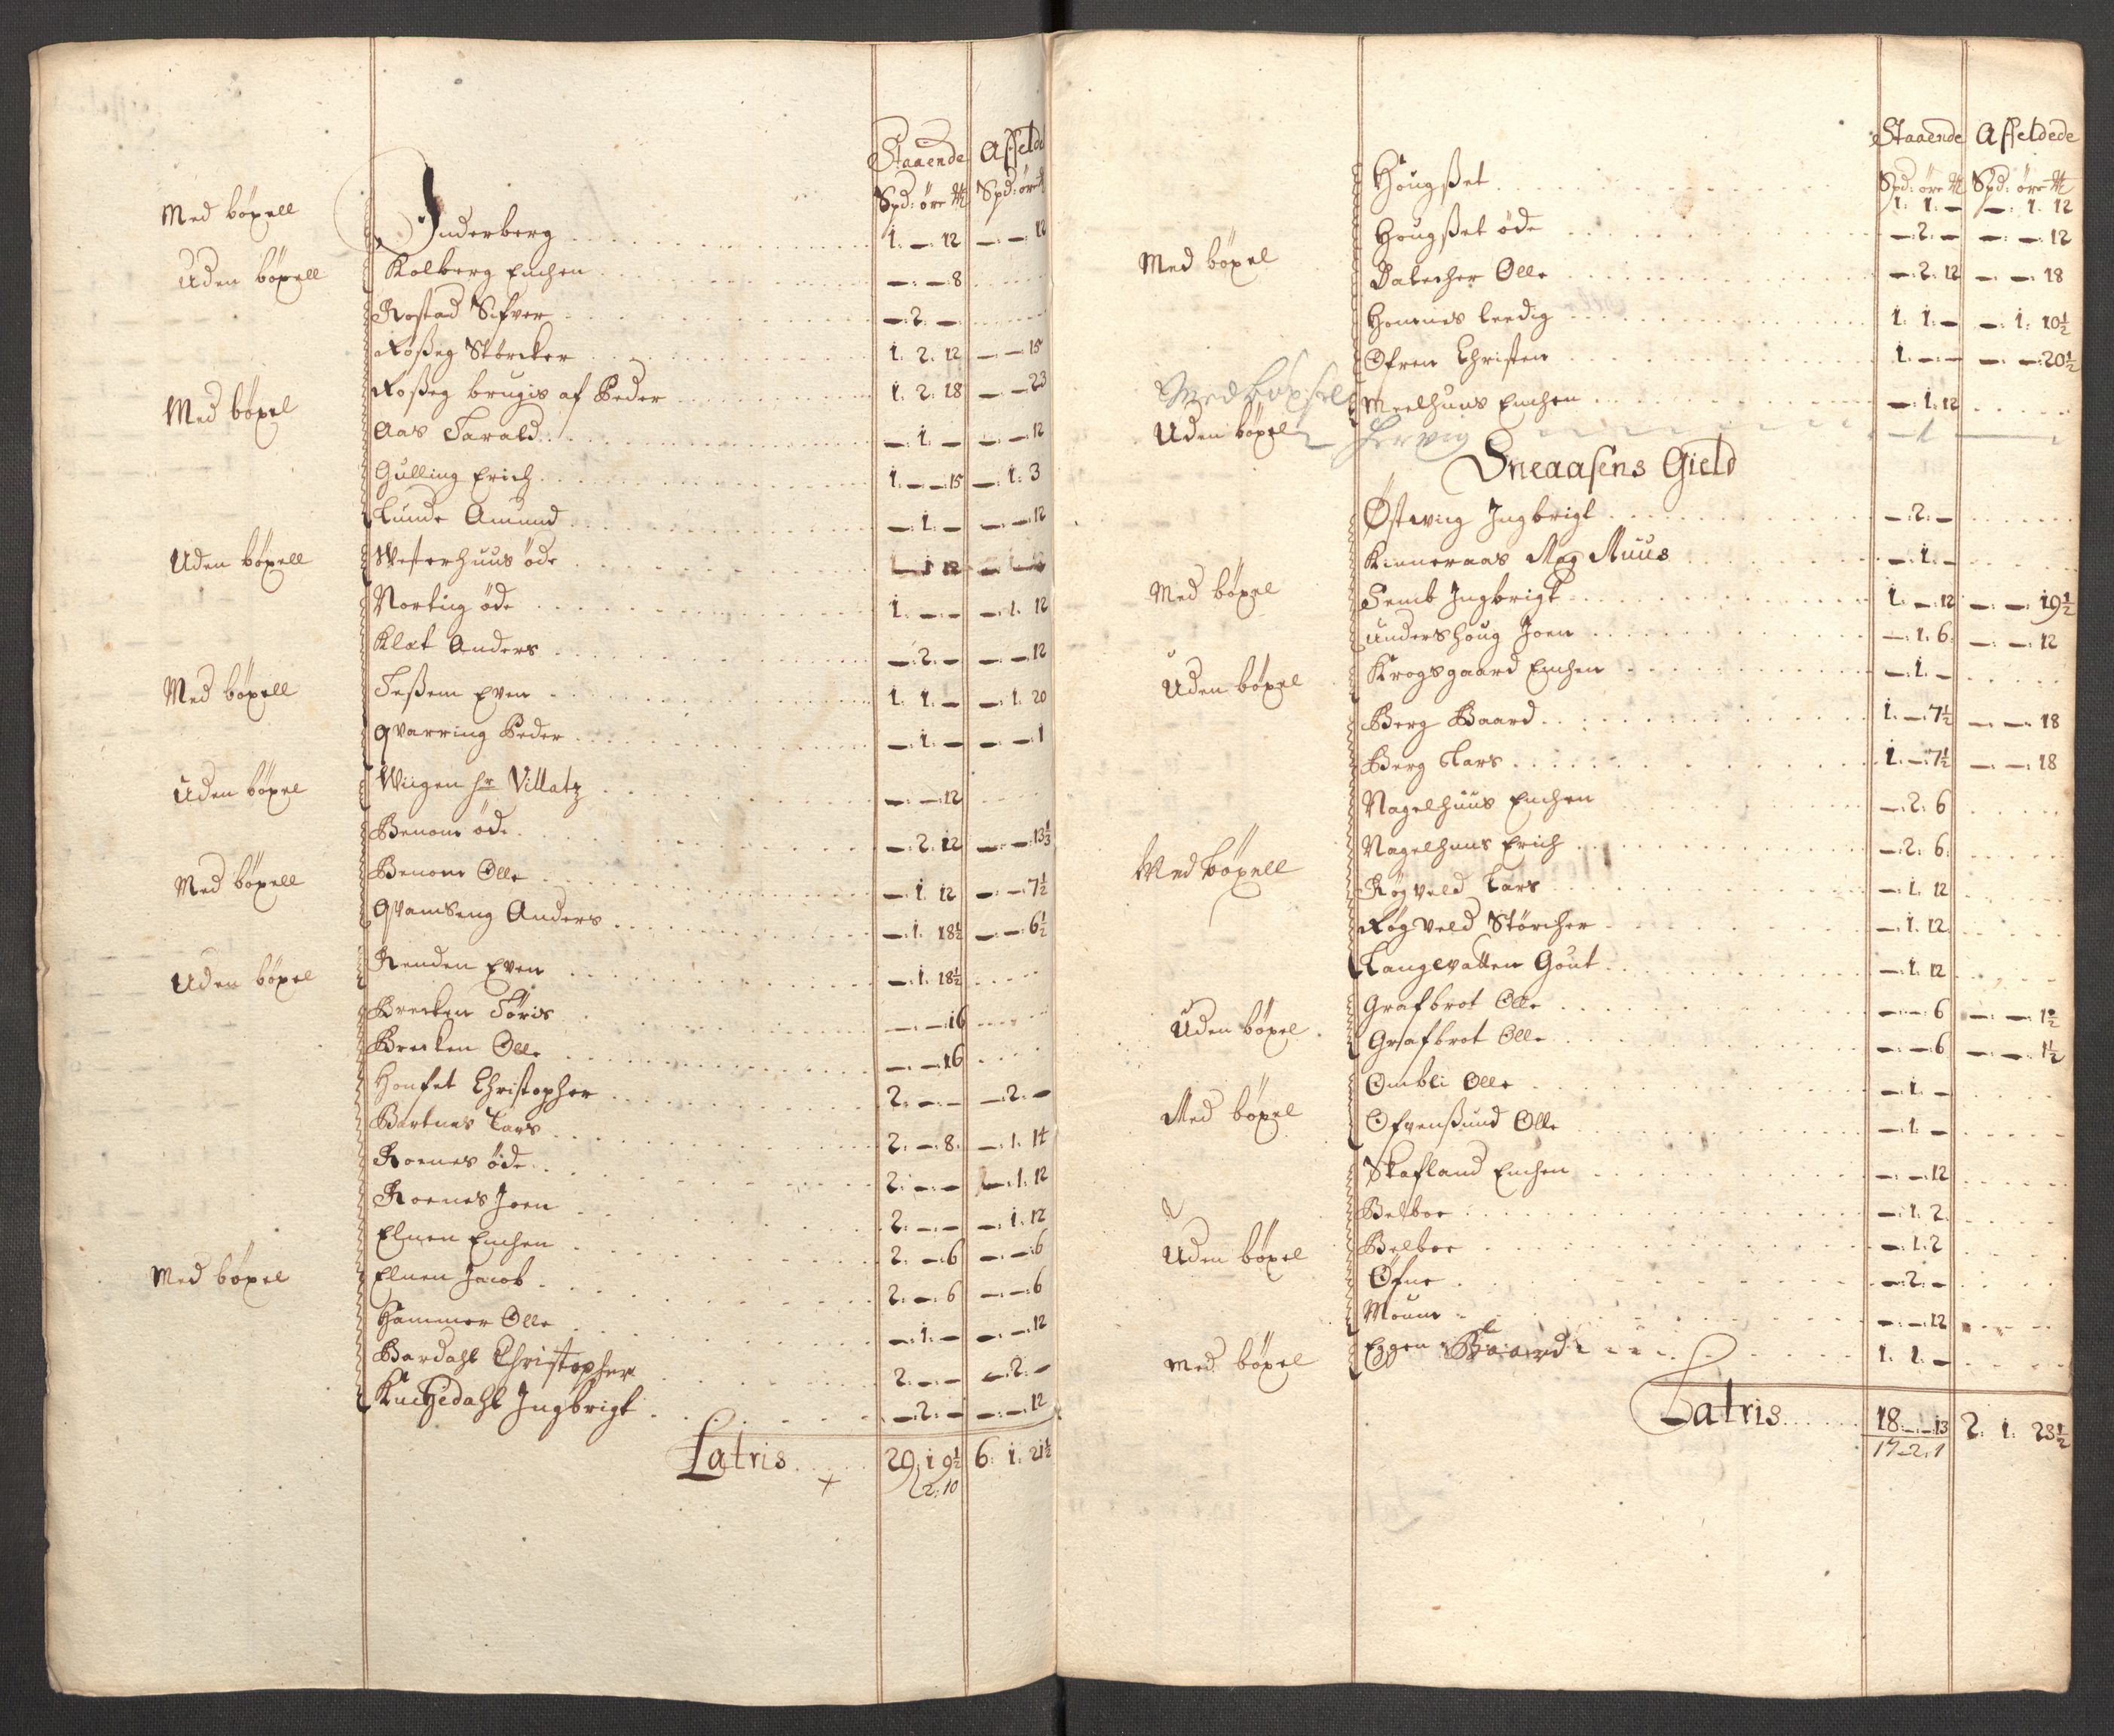 Staaende Affeld
Spd: öre ₶ Spd: öre
Med böxell Inderberg 1. — 12 — — 12
Uden böxell Kolberg Enchen — — 8
Rostad Sifver — 2. —
Roßeg Störcker 1. 2. 12 — — 15
Roßeg brugis af Peder 1. 2. 18 — — 23
Med böxel Aas Tarald — 1. — — — 12
Gulling Erich 1. — 15 — 1. 3
Lunde Amund — 1. — — — 12
Uden böxell Westerhuus öde — 1 12
Nortiig öde 1. — — — 1. 12
Klæt Anders — 2. — — — 12
Med böxell Teßem Even 1. 1. — — 1. 20
Qvarring Peder — 1. — — — 1
Uden böxel Wiigen hr Villatz — — 12
Benom öde — 2. 12 — — 13⅓
Med böxell Benom Olle — 1. 12 — — 7½
Qvamseng Anders — 1. 18½ — — 6½
Uden böxel Renden Even — 1. 18½
Brecken Töris — — 16
Brecken Olle — — 16
Honset Christopher 2. — — — 2. —
Bartnes Lars 2. — 8. — 1. 14
Roenes öde 2. — — — 1. 12
Roenes Joen 2. — — — 1. 12
Elnen Enchen 2. — 6 — — 6
Med böxel Elnen Jacob 2. — 6 — — 6
Hammer Olle — 1. — — — 12
Bardahl Christopher 2. — — — 2. —
Kuchedahl Ingbrigt — 2. — — — 12
Latris 29. 1 9½ 6. 1. 21½
+ 2: 10
Staaende Affeldede
Spd: öre ₶ Spd: öre ₶
Hougßet 1. 1. — — 1. 12
Hougßet öde — 2. — — — 12
Med böxel Dalecher Olle — 2. 12 — — 18
Homnes leedig 1. 1. — — 1. 10½
Ofren Christen 1. — — — — 20½
Med böxsel Meelhuus Enchen — 1. 12
Uden böxel Hervig — 1 —
Sneaasens Gield
Östwiig Ingbrigt — 2. —
Kinneraas Mag Muus — 1. —
Med böxel Semb Ingbrigt 1. — 12 — — 19½
Undershoug Joen — 1. 6. — — 12
Uden böxel Krogsgaard Enchen — 1. —
Berg Baard 1. — 7½ — — 18
Berg Lars 1. — 7½ — — 18
Nagelhuus Enchen — 2. 6
Med böxell Nagelhuus Erich — 2. 6.
Røgveld Lars — 1. 12
Røgveld Störcher — 1. 12.
Langevatten Gout — 1. 12
Uden böxel Grafbrot Olle — — 6 — — 1½
Grafbrot Olle — — 6 — — 1½
Ombli Olle — 1. —
Med böxel Ofvenßund Olle — 1. —
Skafland Enchen — — 12
Belboe — 1. 2.
Uden böxel Belboe — 1. 2
Öfne — 2. —
Moum — — 12
Med böxel Eggen Baard 1. 1. —
Latris 18. — 13 2. 1. 23½
17 — 2: 1